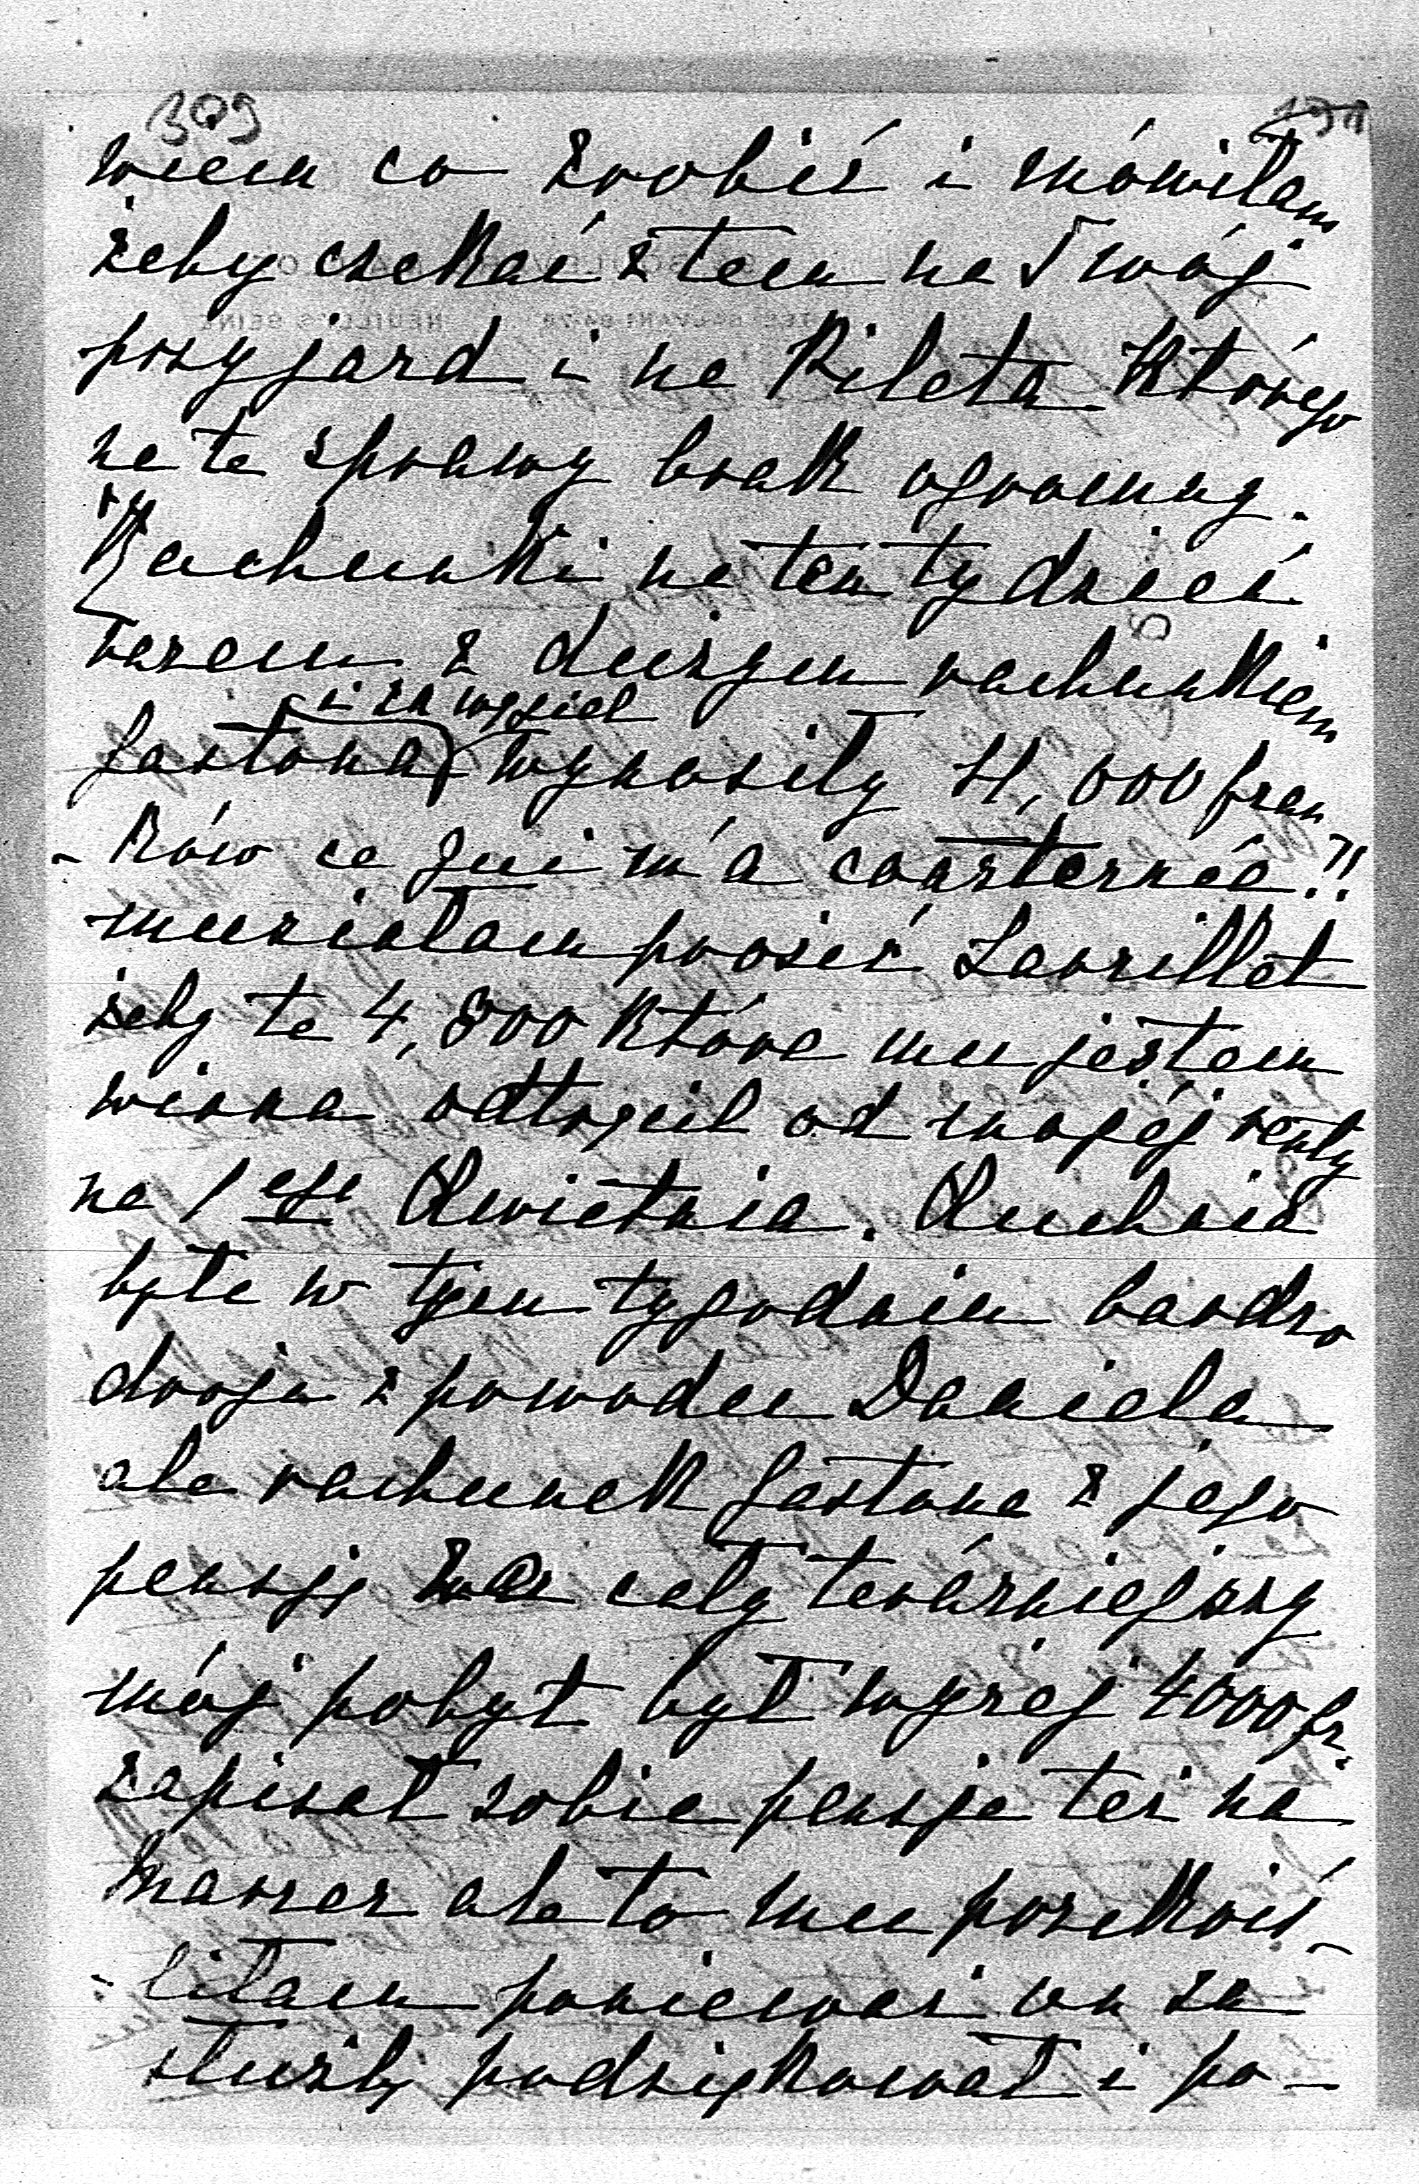 309
wiem co zrobić i mówiłam
żeby czekać z tem na Twój
przyjazd i na Pileta którego
na te sprawy brak ogromny.
Rachunki na ten tydzień
razem z dużym rachunkiem
i za węgiel
Gastona wynosiły 11,000 fran
-ków ce qui m'a consternée!!
musiałam prosić Lavrillet
żeby te 4,800 które mu jestem
winna odtrącił od mojéj renty
na 1ego Kwietnia. Kuchnia
była w tym tygodniu bardzo
droga z powodu Daniela
ale rachunek Gastona z jego
pensją za cały teraźniejszy
mój pobyt był wyżej 4000 fr.
zapisał sobie pensje też na
marzec ale to mu przekréś-
-liłam ponieważ on za
służbę podziękował i po-